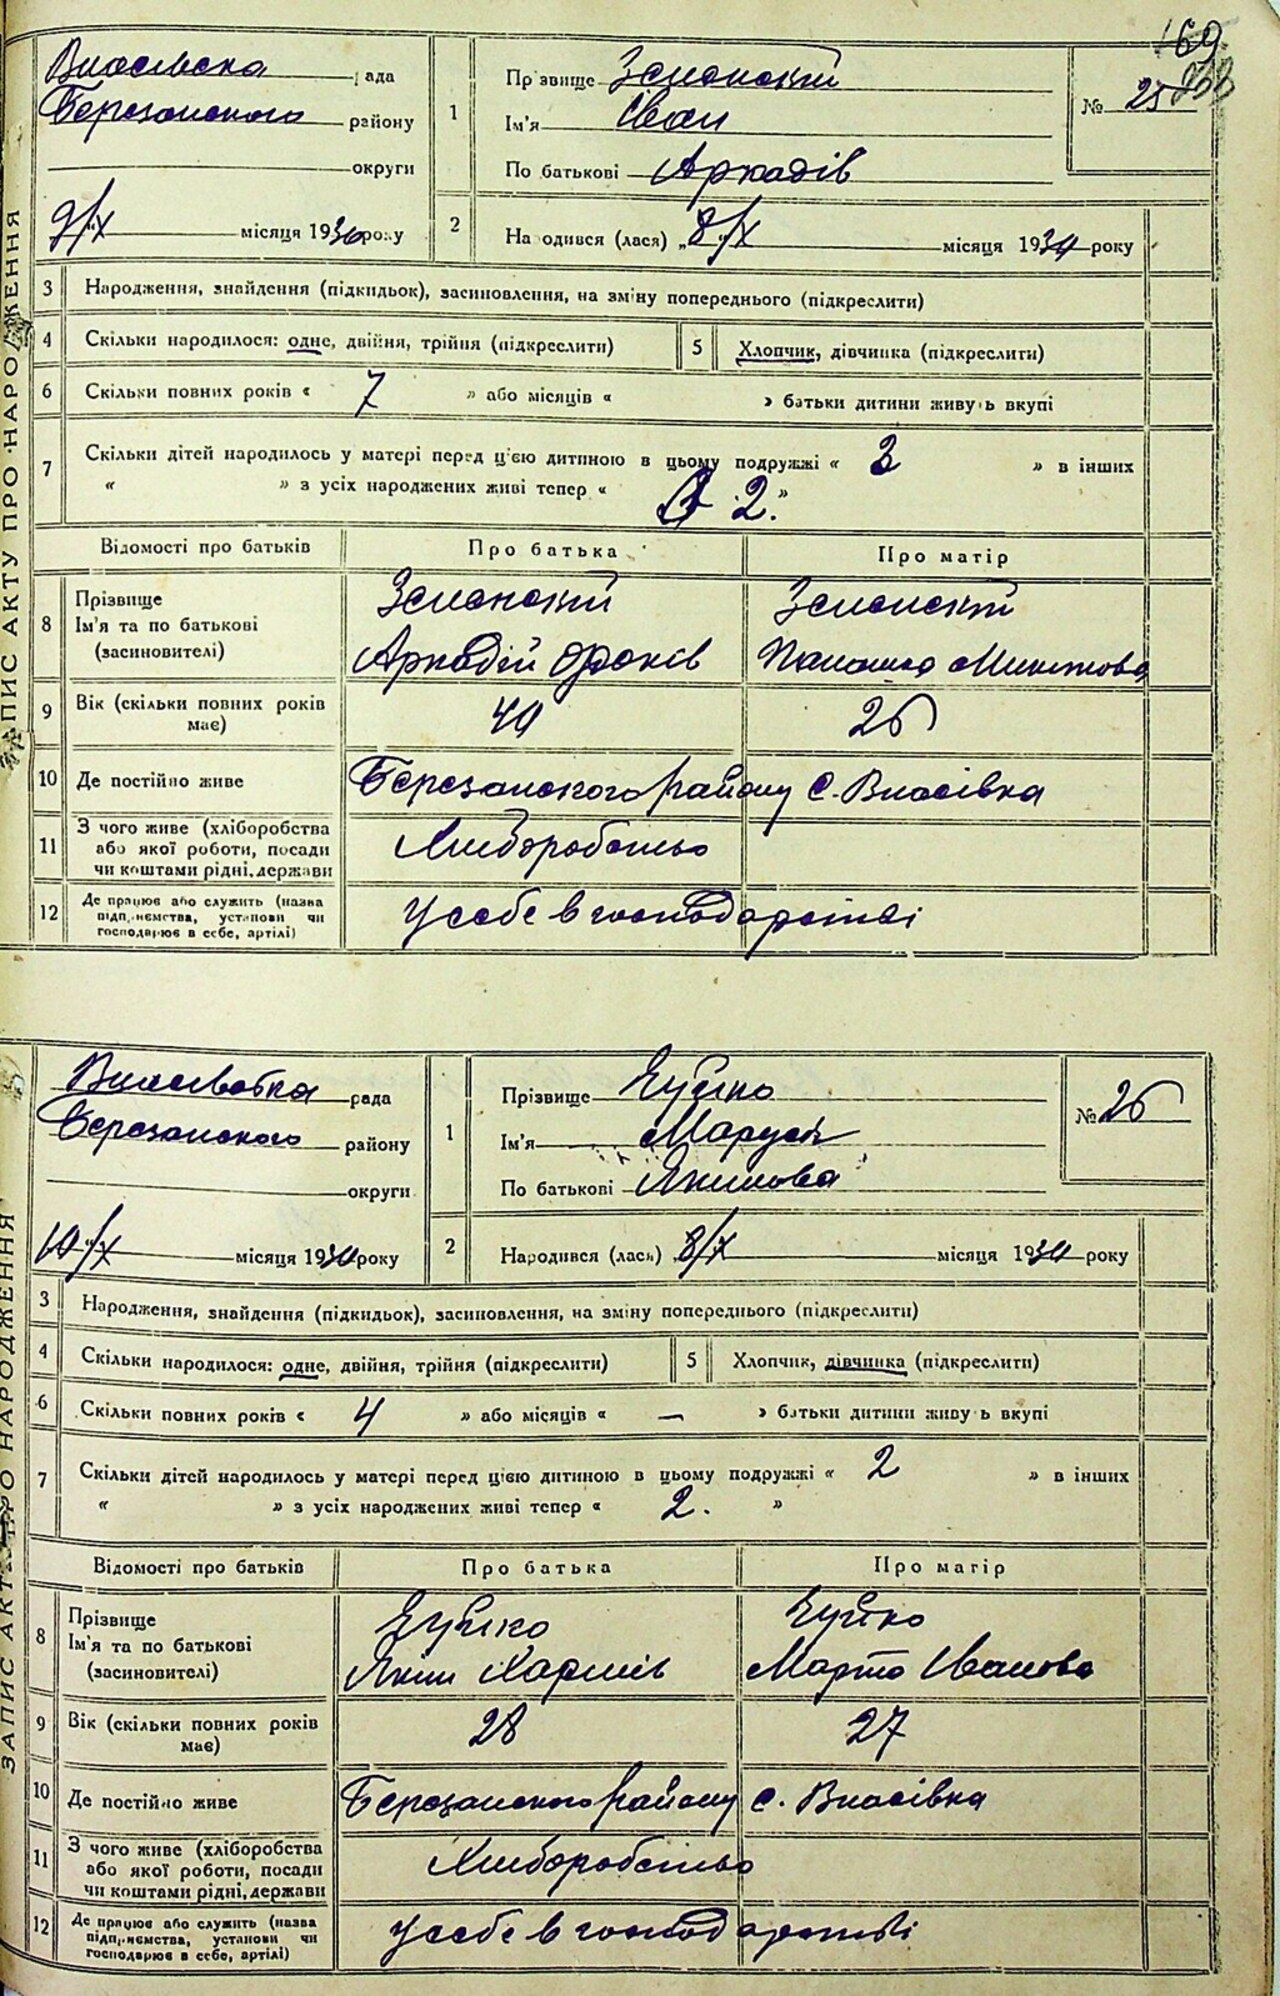 169
ЗАПИС АКТУ ПРО НАРОДЖЕННЯ
Власівска рада
Березанського району
округи
9/X місяця 1930 року
1
Прізвище Зеленский
Ім'я Іван
По батькові Аркадів
№ 25
2
Народився (лася) „8/X місяця 1930 року
3 Народження, знайдення (підкидьок), засиновлення, на зміну попереднього (підкреслити)
4 Скільки народилося: одне, двійня, трійня (підкреслити)
5 Хлопчик, дівчинка (підкреслити)
6 Скільки повних років « 7 » або місяців « » батьки дитини живуть вкупі
7 Скільки дітей народилось у матері перед цією дитиною в цьому подружжі « 3 » в інших
« » з усіх народжених живі тепер « 2. »
Відомості про батьків Про батька Про матір
8 Прізвище
Ім'я та по батькові
(засиновителі)
Аркадій
9 Вік (скільки повних років має) 40 26
10 Де постійно живе Березанского району с. Власівка
11 З чого живе (хліборобства або якої роботи, посади чи коштами рідні, держави Хліборобство
12 Де працює або служить (назва підприємства, установи чи господарює в себе, артілі) У себе в господарстві
ЗАПИС АКТУ ПРО НАРОДЖЕННЯ
рада
Березанского району
округи
10/X місяця 1930 року
1
Прізвище
Ім'я Маруся
По батькові Якимова
№ 26
2
Народився (лася) 8/X місяця 1930 року
3 Народження, знайдення (підкидьок), засиновлення, на зміну попереднього (підкреслити)
4 Скільки народилося: одне, двійня, трійня (підкреслити)
5 Хлопчик, дівчинка (підкреслити)
6 Скільки повних років « 4 » або місяців « — » батьки дитини живуть вкупі
7 Скільки дітей народилось у матері перед цією дитиною в цьому подружжі « 2 » в інших
« » з усіх народжених живі тепер « 2. »
Відомості про батьків Про батька Про матір
8 Прізвище
Ім'я та по батькові
(засиновителі)
Яким Марта Іванова
9 Вік (скільки повних років має) 28 27
10 Де постійно живе Березанского району с. Власівка
11 З чого живе (хліборобства або якої роботи, посади чи коштами рідні, держави Хліборобство
12 Де працює або служить (назва підприємства, установи чи господарює в себе, артілі) У себе в господарстві